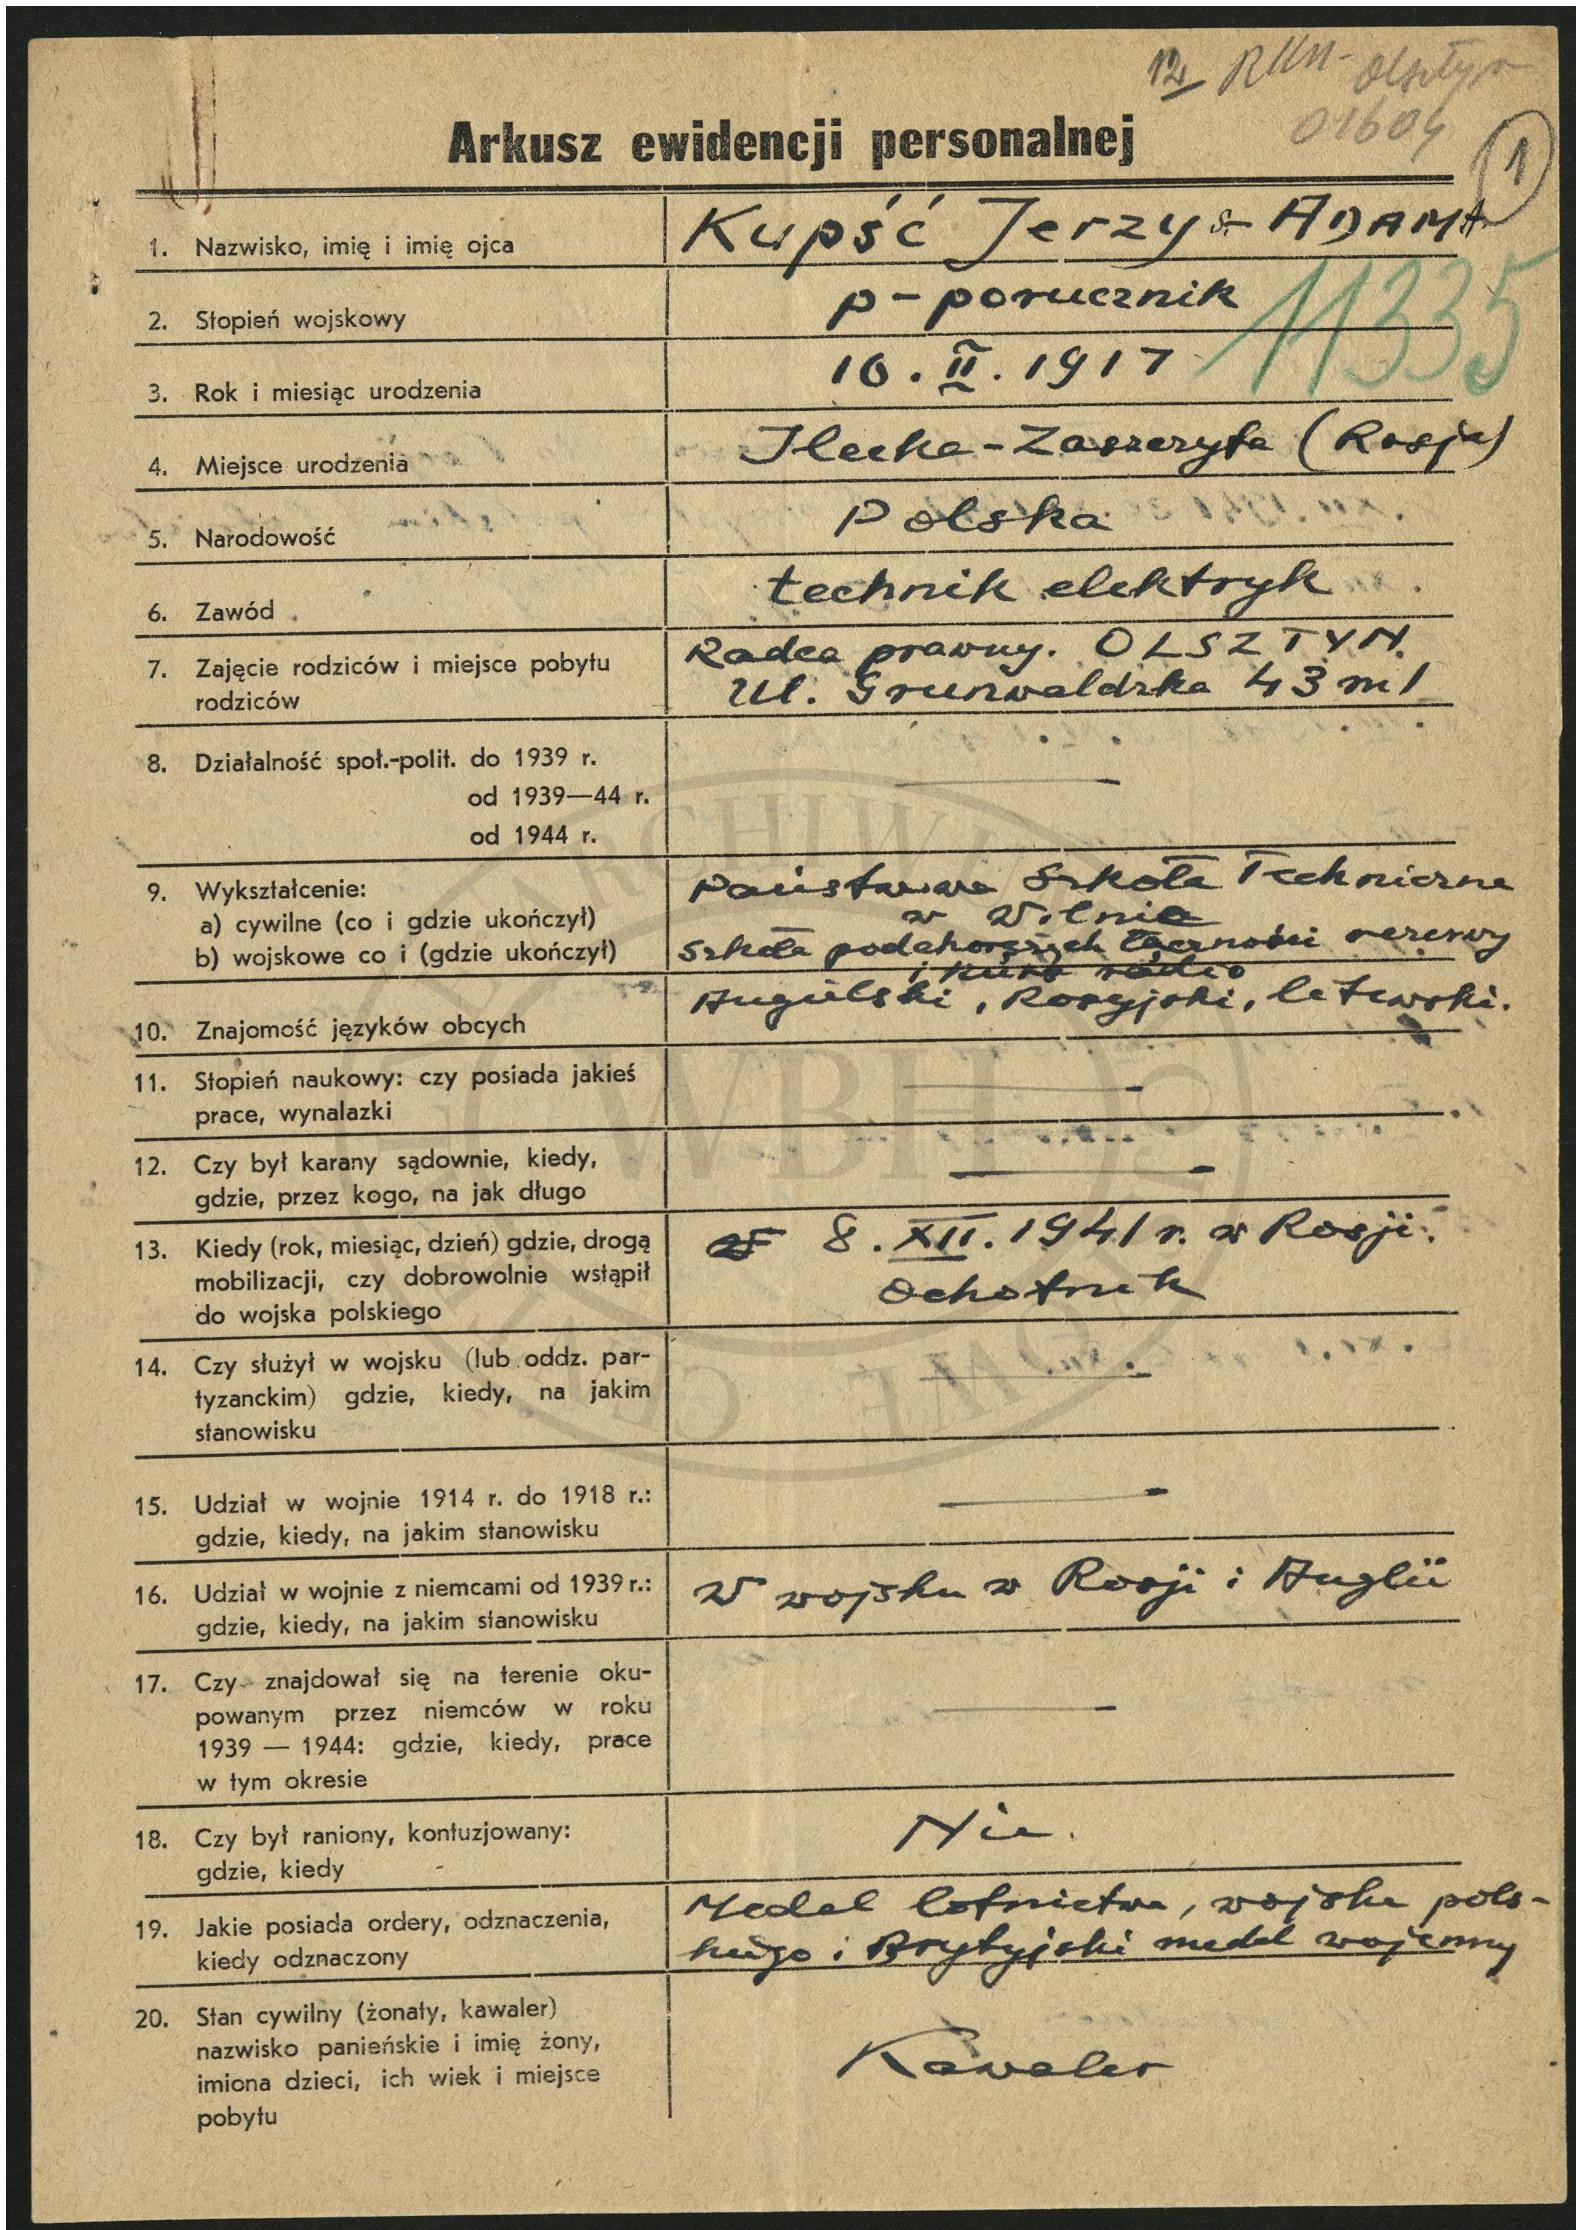 12 RKU - Olsztyn
01604
1
Arkusz ewidencji personalnej
1. Nazwisko, imię i imię ojca
Kupść Jerzy s. ADAMA
11335
2. Stopień wojskowy
p-porucznik
3. Rok i miesiąc urodzenia
10. II. 1917
4. Miejsce urodzenia
Ilecka-Zaszczyta (Rosja)
5. Narodowość
Polska
6. Zawód
technik elektryk
7. Zajęcie rodziców i miejsce pobytu
rodziców
Radca prawny. OLSZTYN.
Ul. Grunwaldzka 43 m 1
8. Działalność społ.-polit. do 1939 r.
od 1939—44 r.
od 1944 r.
9. Wykształcenie:
a) cywilne (co i gdzie ukończył)
b) wojskowe co i (gdzie ukończył)
Państwowa Szkoła Techniczna
w Wilnie
Szkoła podchorążych łączności rezerwy
i kurs radio
10. Znajomość języków obcych
Angielski, Rosyjski, litewski.
11. Stopień naukowy: czy posiada jakieś
prace, wynalazki
12. Czy był karany sądownie, kiedy,
gdzie, przez kogo, na jak długo
13. Kiedy (rok, miesiąc, dzień) gdzie, drogą
mobilizacji, czy dobrowolnie wstąpił
do wojska polskiego
8. XII. 1941 r. w Rosji.
Ochotnik
14. Czy służył w wojsku (lub oddz. par-
tyzanckim) gdzie, kiedy, na jakim
stanowisku
15. Udział w wojnie 1914 r. do 1918 r.:
gdzie, kiedy, na jakim stanowisku
16. Udział w wojnie z niemcami od 1939 r.:
gdzie, kiedy, na jakim stanowisku
W wojsku w Rosji i Anglii
17. Czy znajdował się na terenie oku-
powanym przez niemców w roku
1939 — 1944: gdzie, kiedy, prace
w tym okresie
18. Czy był raniony, kontuzjowany:
gdzie, kiedy
Nie.
19. Jakie posiada ordery, odznaczenia,
kiedy odznaczony
Medal lotnictwa, wojska pols-
kiego i Brytyjski medal wojenny
20. Stan cywilny (żonaty, kawaler)
nazwisko panieńskie i imię żony,
imiona dzieci, ich wiek i miejsce
pobytu
Kawaler
ARCHIWUM
WBH